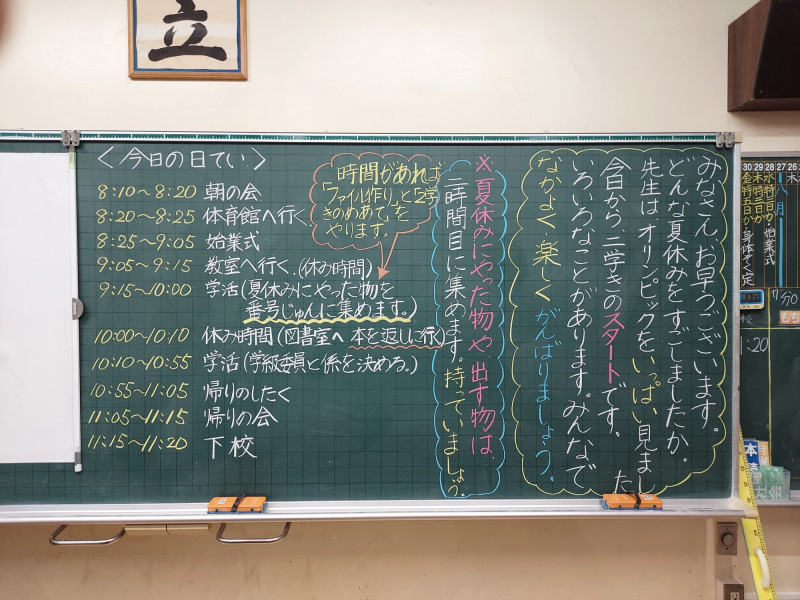 立
＜今日の日てい＞
8:10〜8:20 朝の会
8:20〜8:25 体育館へ行く
8:25〜9:05 始業式
9:05〜9:15 教室へ行く(休み時間)
9:15〜10:00 学活(夏休みにやった物を
番号じゅんに集めます。)
10:00〜10:10 休み時間(図書室へ本を返しに行く)
10:10〜10:55 学活(学級委員と係を決める。)
10:55〜11:05 帰りのしたく
11:05〜11:15 帰りの会
11:15〜11:20 下校
時間があれば
「ファイル作り」と「2学
きのめあて」を
やります。
※夏休みにやった物や、出す物は、
二時間目に集めます。持っていましょう。
みなさん、お早うございます。
どんな夏休みをすごしましたか。
先生はオリンピックをいっぱい見まし
た
今日から二学きのスタートです。
いろいろなことがあります。みんなで
なかよく楽しくがんばりましょう。
30 29 28 27 26
金 木 水
八月
木
特五日か 身体そく定
特三日か
特二日か 始業式